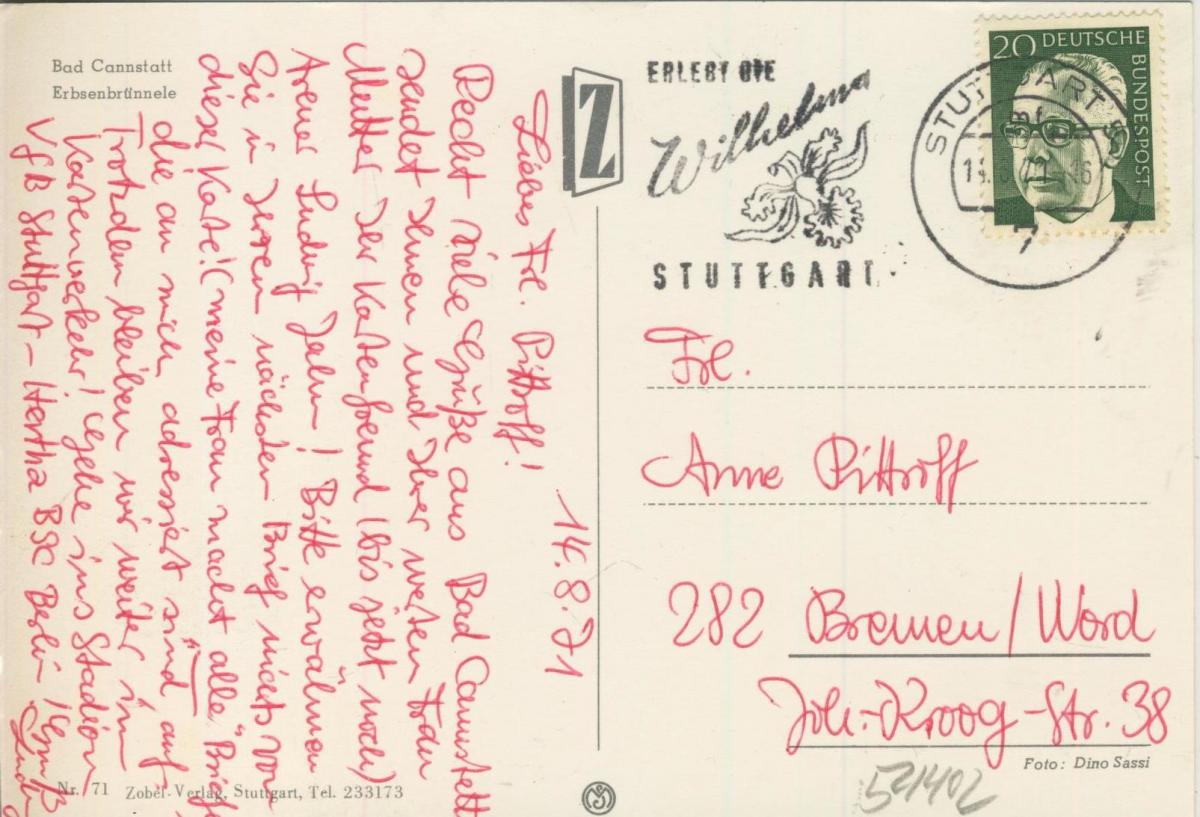 Bad Cannstatt
Erbsenbrünnele
14.8.71
Liebes Frl. Pittroff!
Recht viele Grüße aus Bad Cannstatt
sendet Ihnen und Ihrer werten Frau
Mutter Ihr Kartenfreund (bis jetzt noch)
Ludwig Jahn! Bitte erwähnen
Sie in Ihrem nächsten Brief nichts von
dieser Karte! (meine Frau macht alle Briefe
die an mich adressiert sind auf
Trotzdem bleiben wir weiter im
Kartenverkehr! Gehe ins Stadion
VfB Stuttgart - Hertha BSC Berlin! Gruß
Nr. 71 Zobel-Verlag, Stuttgart, Tel. 233173
Z
ERLEBT DIE
Wilhelma
STUTTGART
STUTTGART
7
20 DEUTSCHE
BUNDESPOST
Frl.
Anne Pittroff
282 Bremen/Nord
Joh.-Kroog-Str. 38
Foto: Dino Sassi
521402